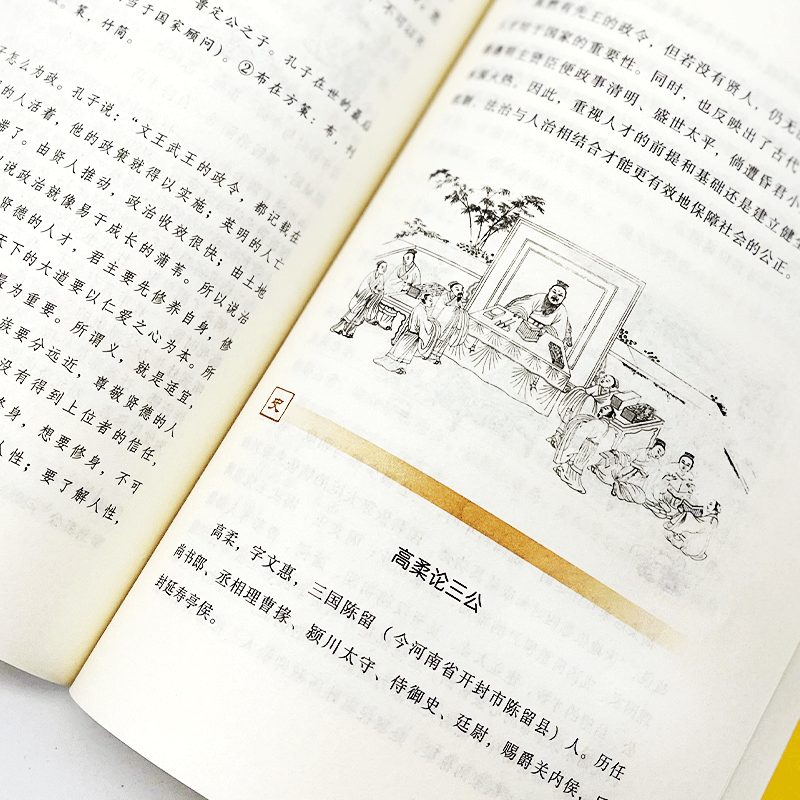 鲁定公之子。孔子在世的最后
当于国家顾问）。②布在方策：布，
策，竹简。
子怎么为政。孔子说：“文王武王的政令，都记载在
的人活着，他的政策就得以实施；英明的人亡
带了。由贤人推动，政治收效很快；由土地
以说政治就像易于成长的蒲苇。所以说治
贤德的人才，君主要先修养自身，修
天下的大道要以仁爱之心为本。所
最为重要。所谓义，就是适宜，
族要分远近，尊敬贤德的人
没有得到上位者的信任，
修身，想要修身，不可
人性；要了解人性，
有先王的政令，但若没有贤人，仍无
于国家的重要性。同时，也反映出了古代
明主贤臣便政事清明、盛世太平，倘遭昏君小
深火热。因此，重视人才的前提和基础还是建立健全
法治与人治相结合才能更有效地保障社会的公正。
史
高柔论三公
高柔，字文惠，三国陈留（今河南省开封市陈留县）人。历任
尚书郎、丞相理曹掾、颍川太守、侍御史、廷尉，赐爵关内侯，
封延寿亭侯。